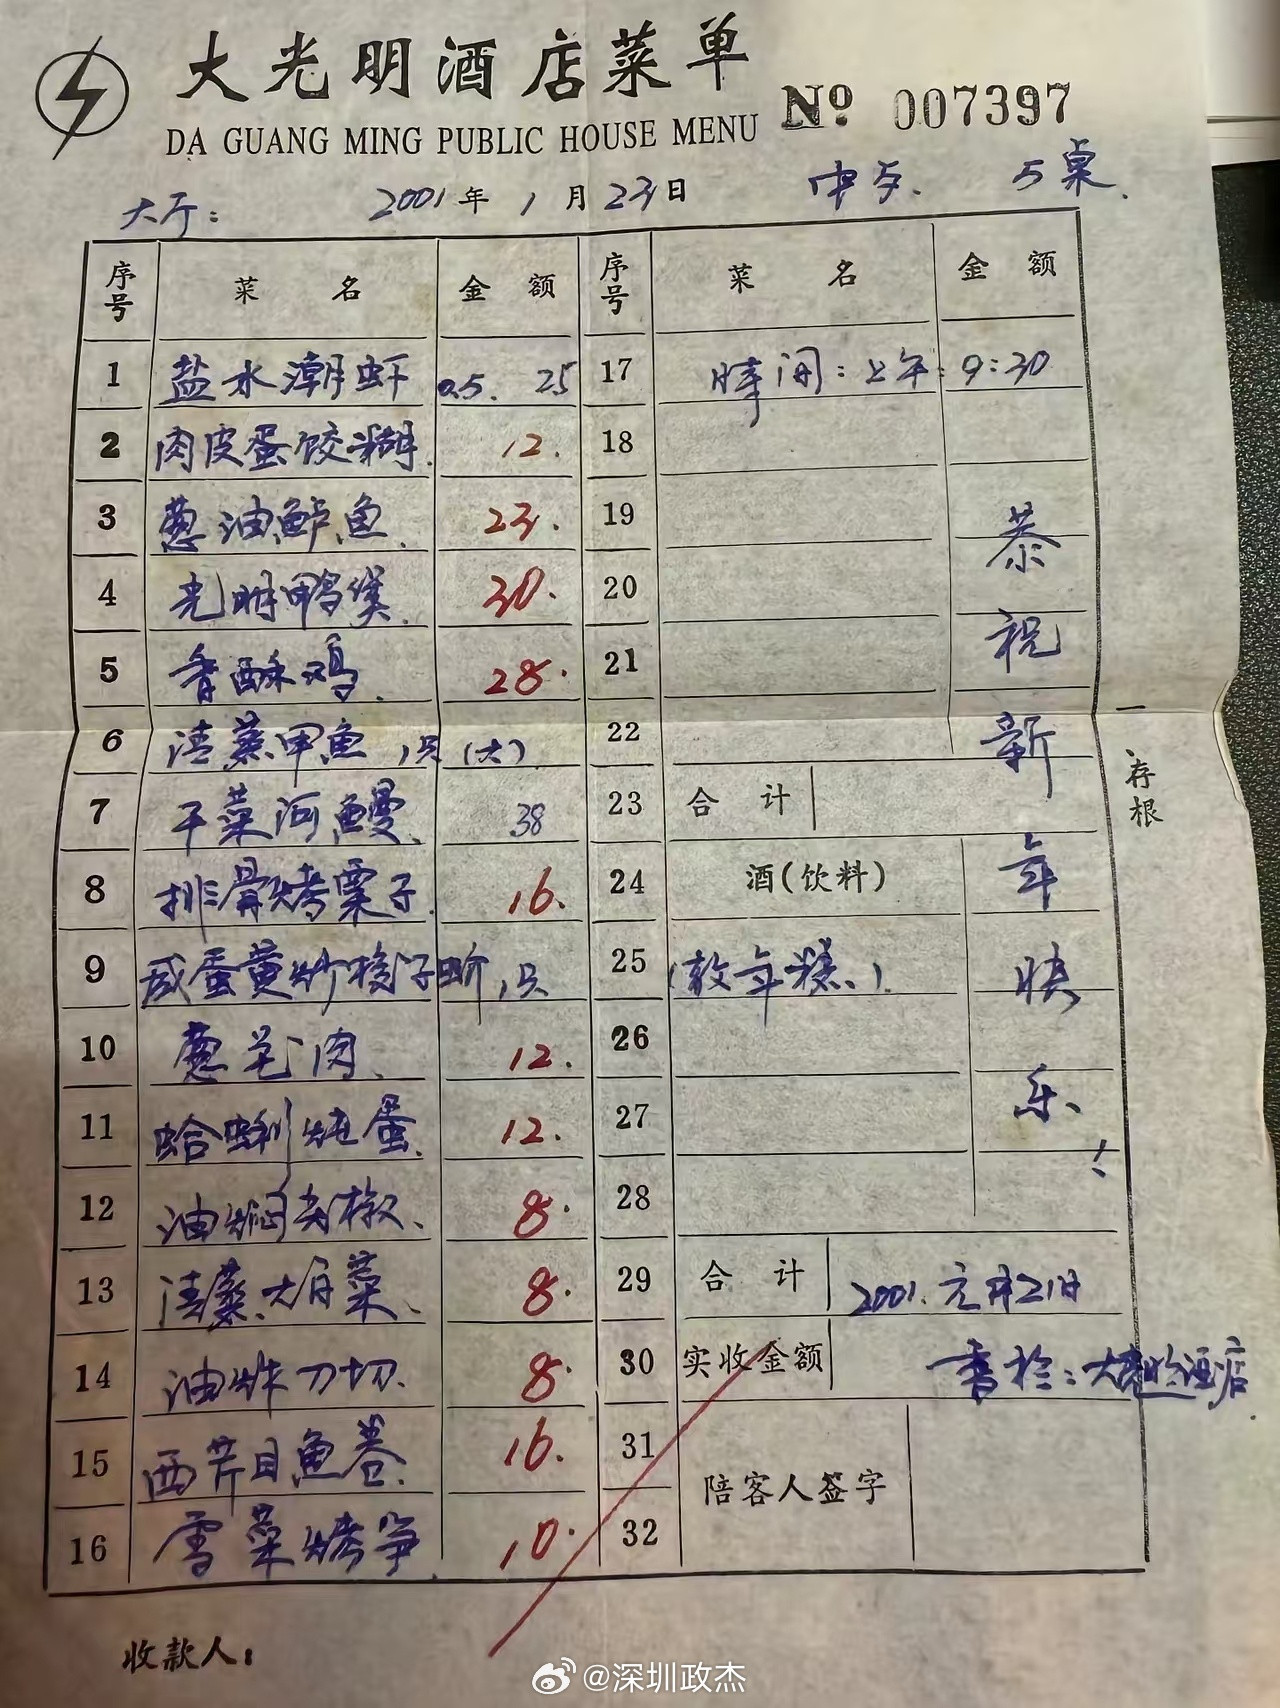 大光明酒店菜单
DA GUANG MING PUBLIC HOUSE MENU
№ 007397
大厅: 2001年1月23日 中午. 5桌.
序号 菜名 金额 序号 菜名 金额
1 盐水潮虾 0.5. 25 17 時间:上午:9:30
2 肉皮蛋饺糊. 12. 18
3 葱油鲈鱼. 23. 19
4 光明鸭煲. 30. 20
5 香酥鸡. 28. 21
6 清蒸甲鱼 1只(大). 22
7 干菜河鳗. 38 23 合计
8 排骨烤栗子. 16. 24 酒(饮料)
9 咸蛋黄炒梭子蚧 1只 25 (敬年糕.)
10 葱 肉. 12. 26
11 蛤蜊炖蛋. 12. 27
12 油焖 椒. 8. 28
13 清蒸 菜. 8. 29 合计 2001.元月21日
14 油炸刀切. 8. 30 实收金额 書於:大光明酒店.
15 西芹目鱼卷. 16. 31 陪客人签字
16 雪菜烤笋 10. 32
恭祝新年快乐!
一存根
收款人:
@深圳政杰